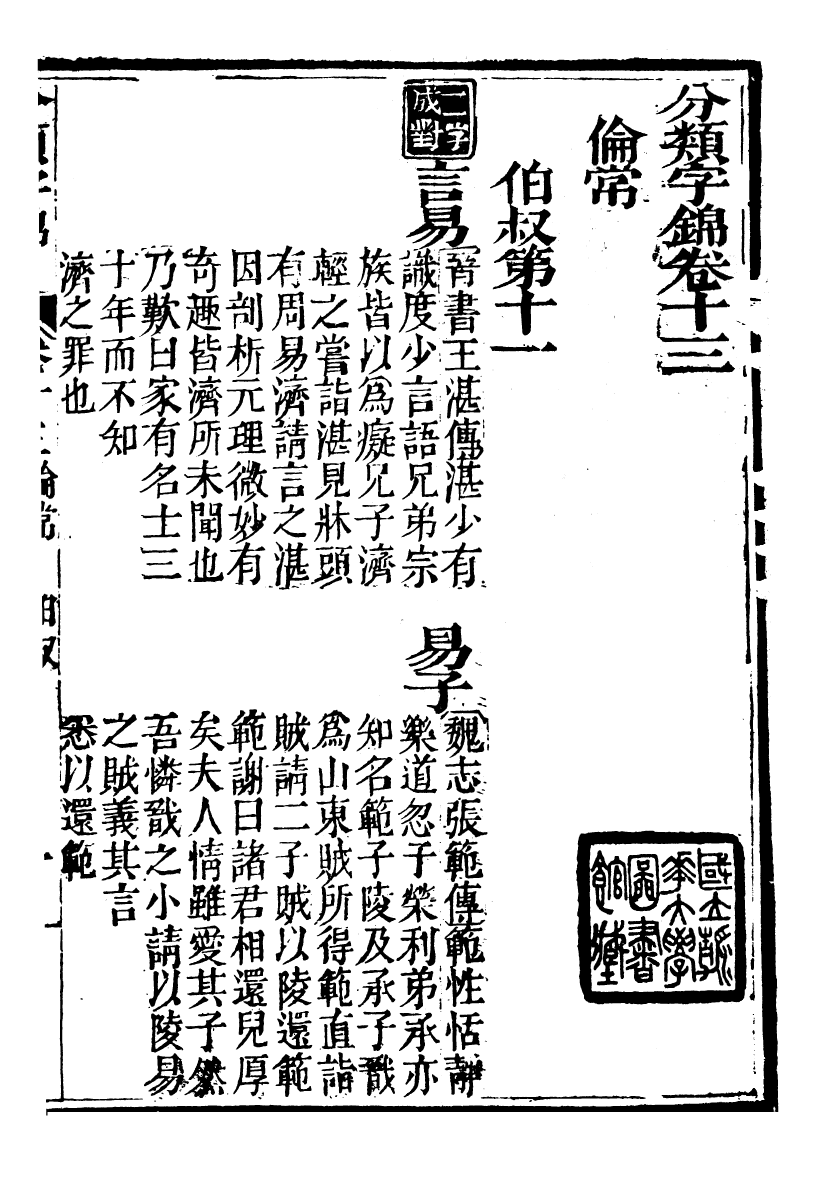 分類字錦卷十三
倫常
伯叔第十一
二字成對
言易
晉書王湛傳湛少有
識度少言語兄弟宗
族皆以爲癡兄子濟
輕之嘗詣湛見牀頭
有周易濟請言之湛
因剖析元理微妙有
奇趣皆濟所未聞也
乃歎曰家有名士三
十年而不知
濟之罪也
易子
魏志張範傳範性恬靜
樂道忽于榮利弟承亦
知名範子陵及承子戩
爲山東賊所得範直詣
賊請二子賊以陵還範
範謝曰諸君相還兒厚
矣夫人情雖愛其子然
吾憐戩之小請以陵易
之賊義其言
悉以還範
國立清
華大學
圖書
館藏
分類字錦 卷十三倫常 伯叔 一